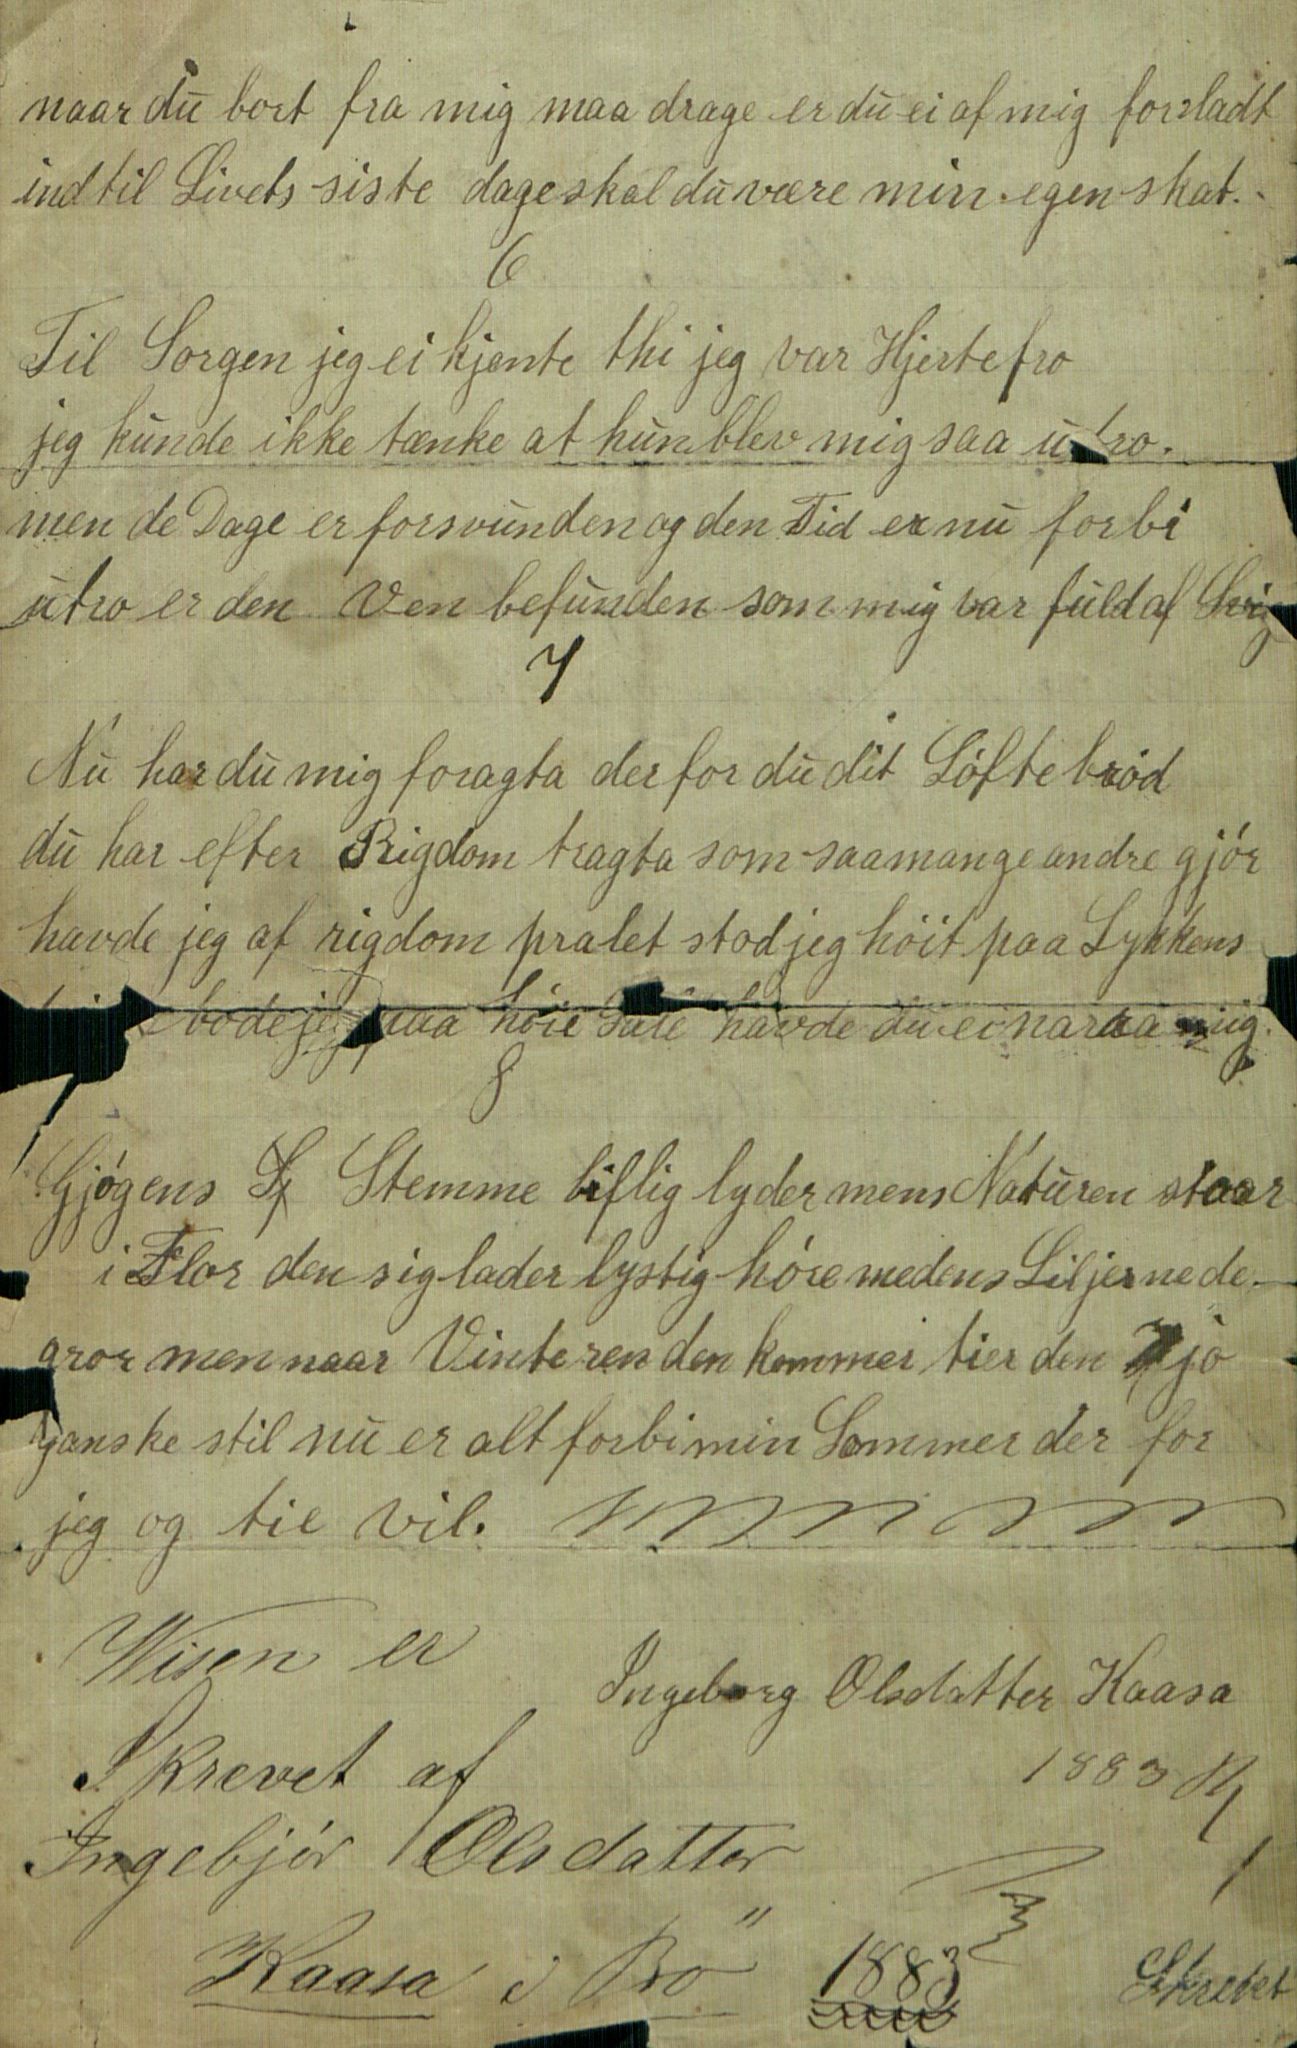 naar du bort fra mig maa drage er du ei af mig forladt
indtil Livets siste dage skal du være min egen skat.
6
Til Sorgen jeg ei kjente thi jeg var Hjerte fro
jeg kunde ikke tænke at hun blev mig saa utro.
men de Dage er forsvunden og den Tid er nu forbi
utro er den Ven befunden som mig var fuld af Svig
7
Nu har du mig foragta der for du dit Löfte bröd
du har efter Rigdom tragta som saa mange andre gjör
havde jeg af rigdom pralet stod jeg höit paa Lykkens
bode jeg paa höie Sale havde du ei narraa mig.
8
Gjögens Stemme liflig lyder mens Naturen staar
i Flor den sig lader lystig höre medens Liljerne de
gror men naar Vinteren den kommer tier den jo
ganske stil nu er alt forbi min Sommer der for
jeg og tie vil.
Wisen er
Ingeborg Olsdatter Kaasa
Skrevet af
1883
Ingebjör Olsdatter
Kaasa i Bö 1883 Skrevet